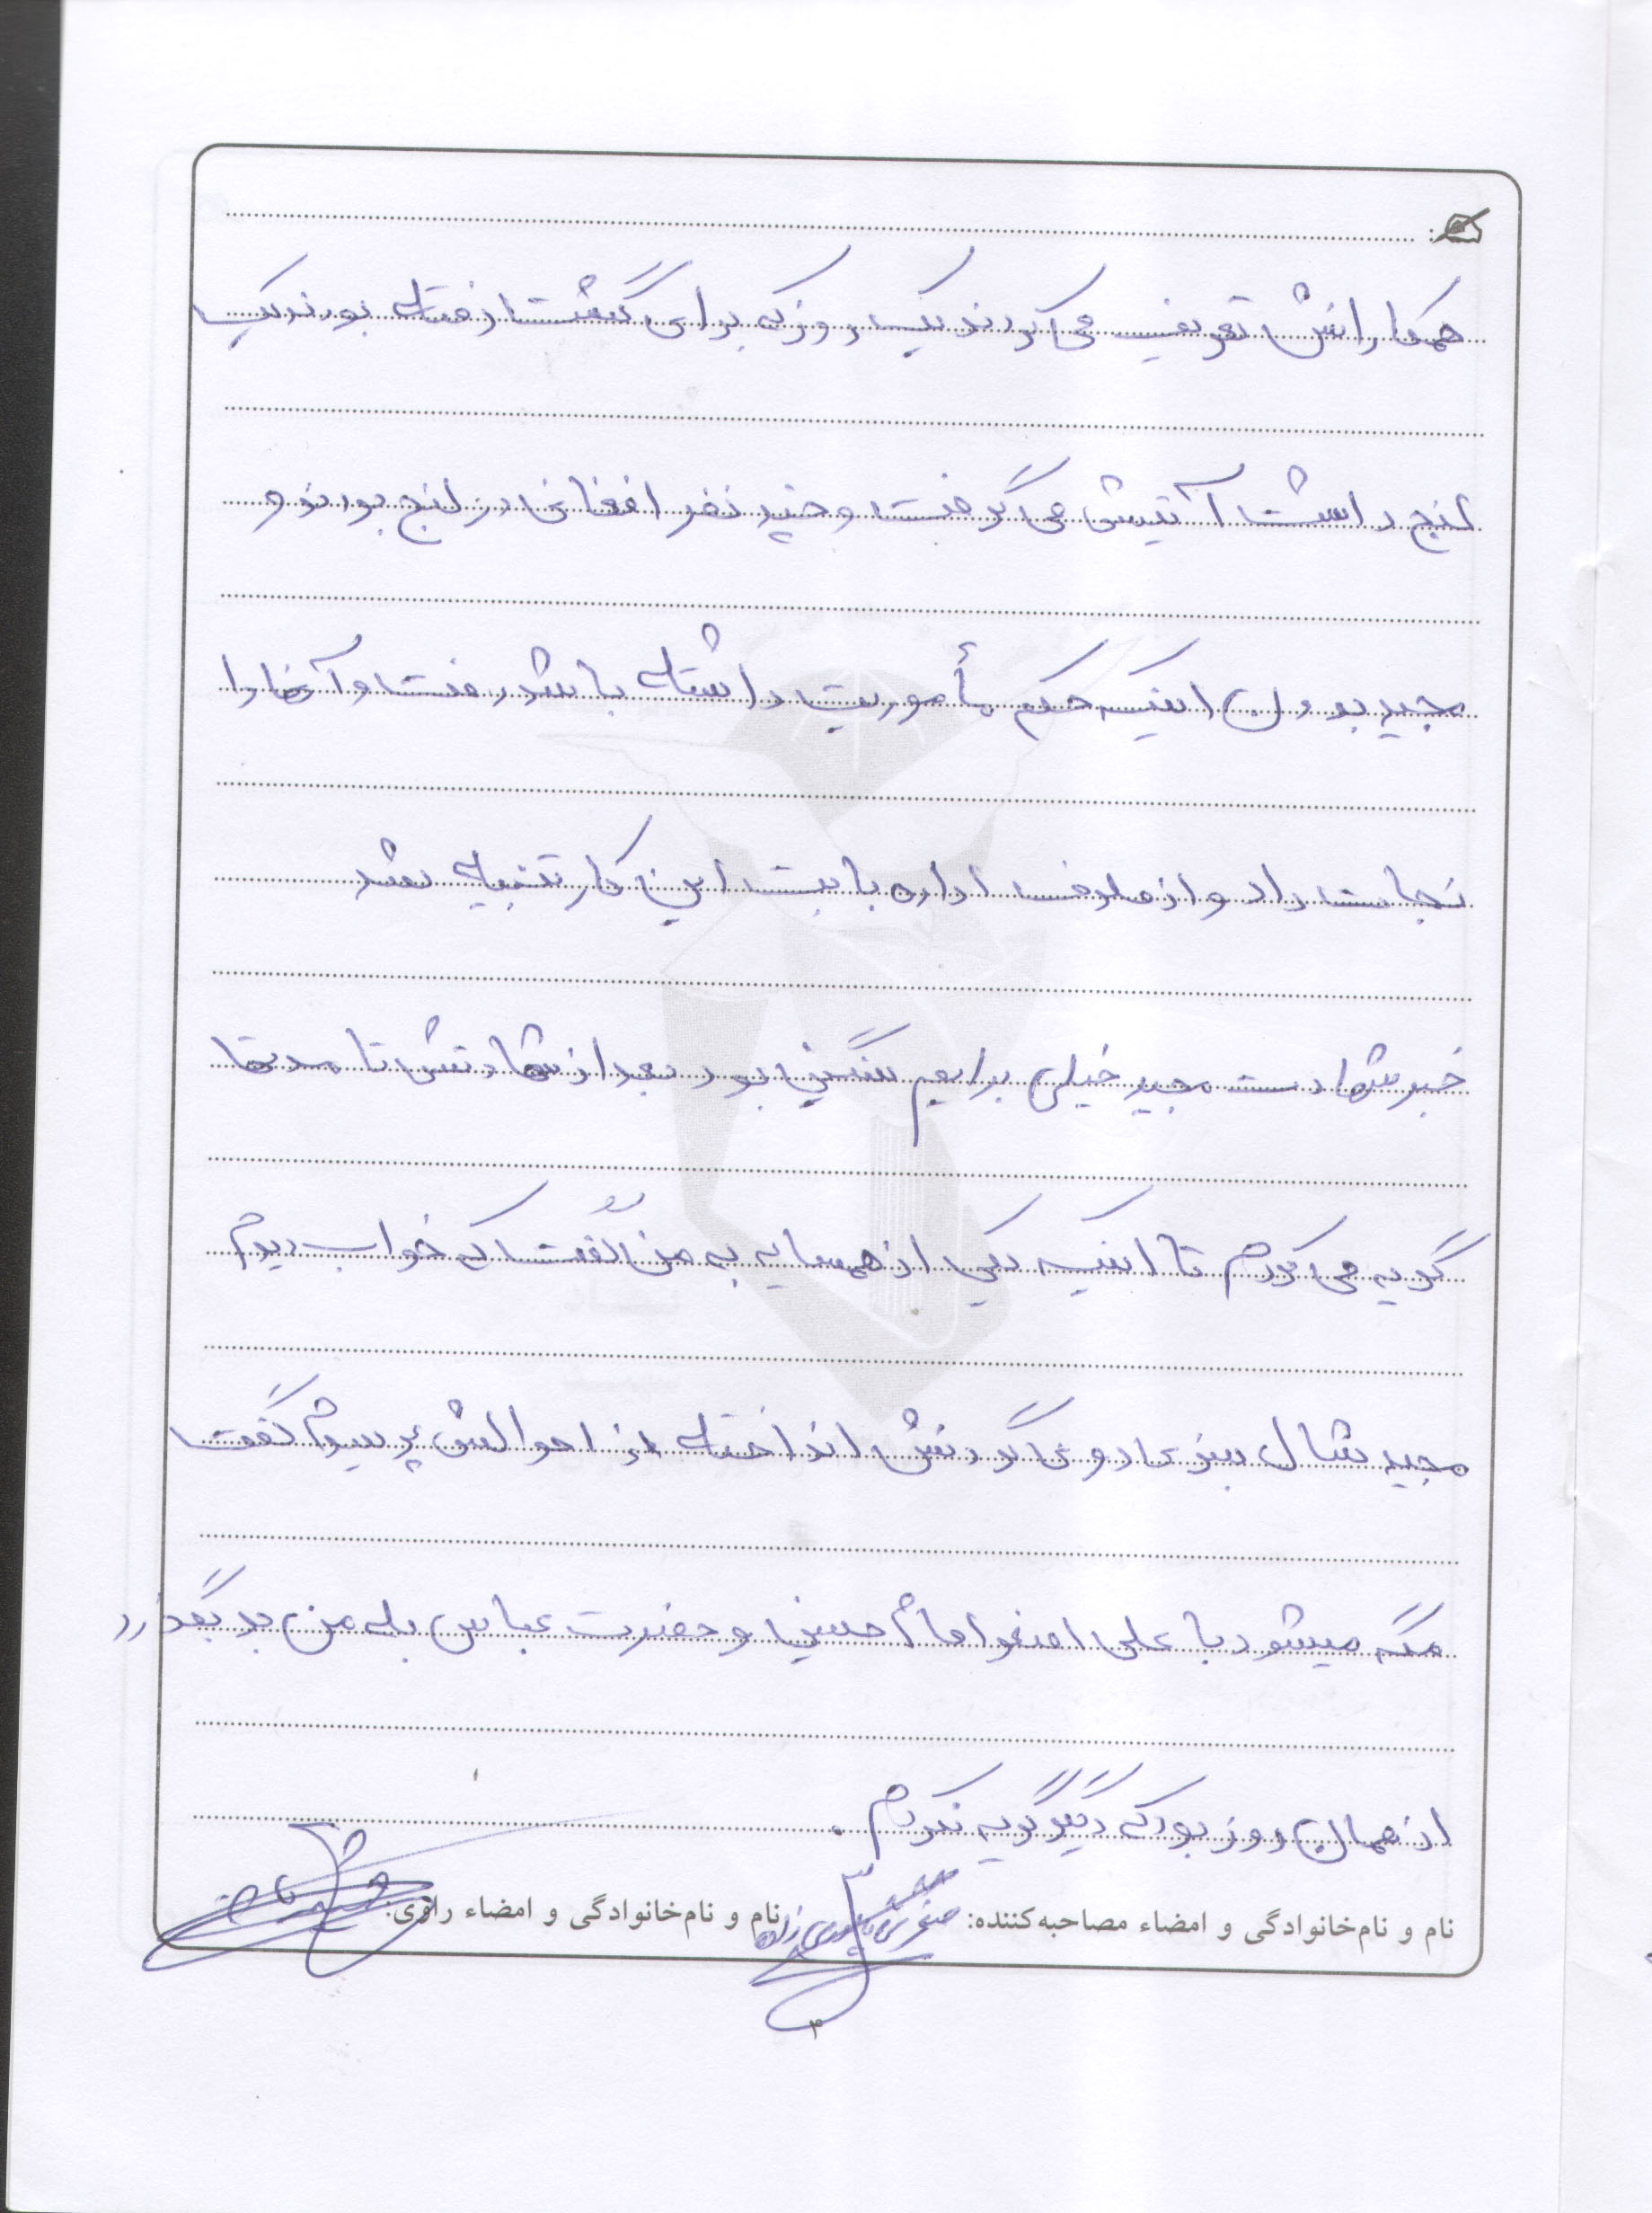 همکارانش تعریف می کردند یک روز که برای گشت رفته بودند یک
لنج داشت آتیش می گرفت و چند نفر افغانی در لنج بودند و
مجید بدون اینکه حکم مأموریت داشته باشد رفت و آنها را
نجات داد و از طرف اداره بابت این کار تنبیه شد
خبر شهادت مجید خیلی برایم سنگین بود بعد از شهادتش تا مدتها
گریه می کردم تا اینکه یکی از همسایه به من گفت که خواب دیدم
مجید شال سبزی رو گردنش انداخته از احوالش پرسیدم گفت
مگه میشود با علی اصغر و امام حسین و حضرت عباس به من بد بگذرد
از همان روز بود که دیگر گریه نکردم .
نام و نام‌خانوادگی و امضاء مصاحبه‌کننده: نام و نام‌خانوادگی و امضاء راوی:
۳